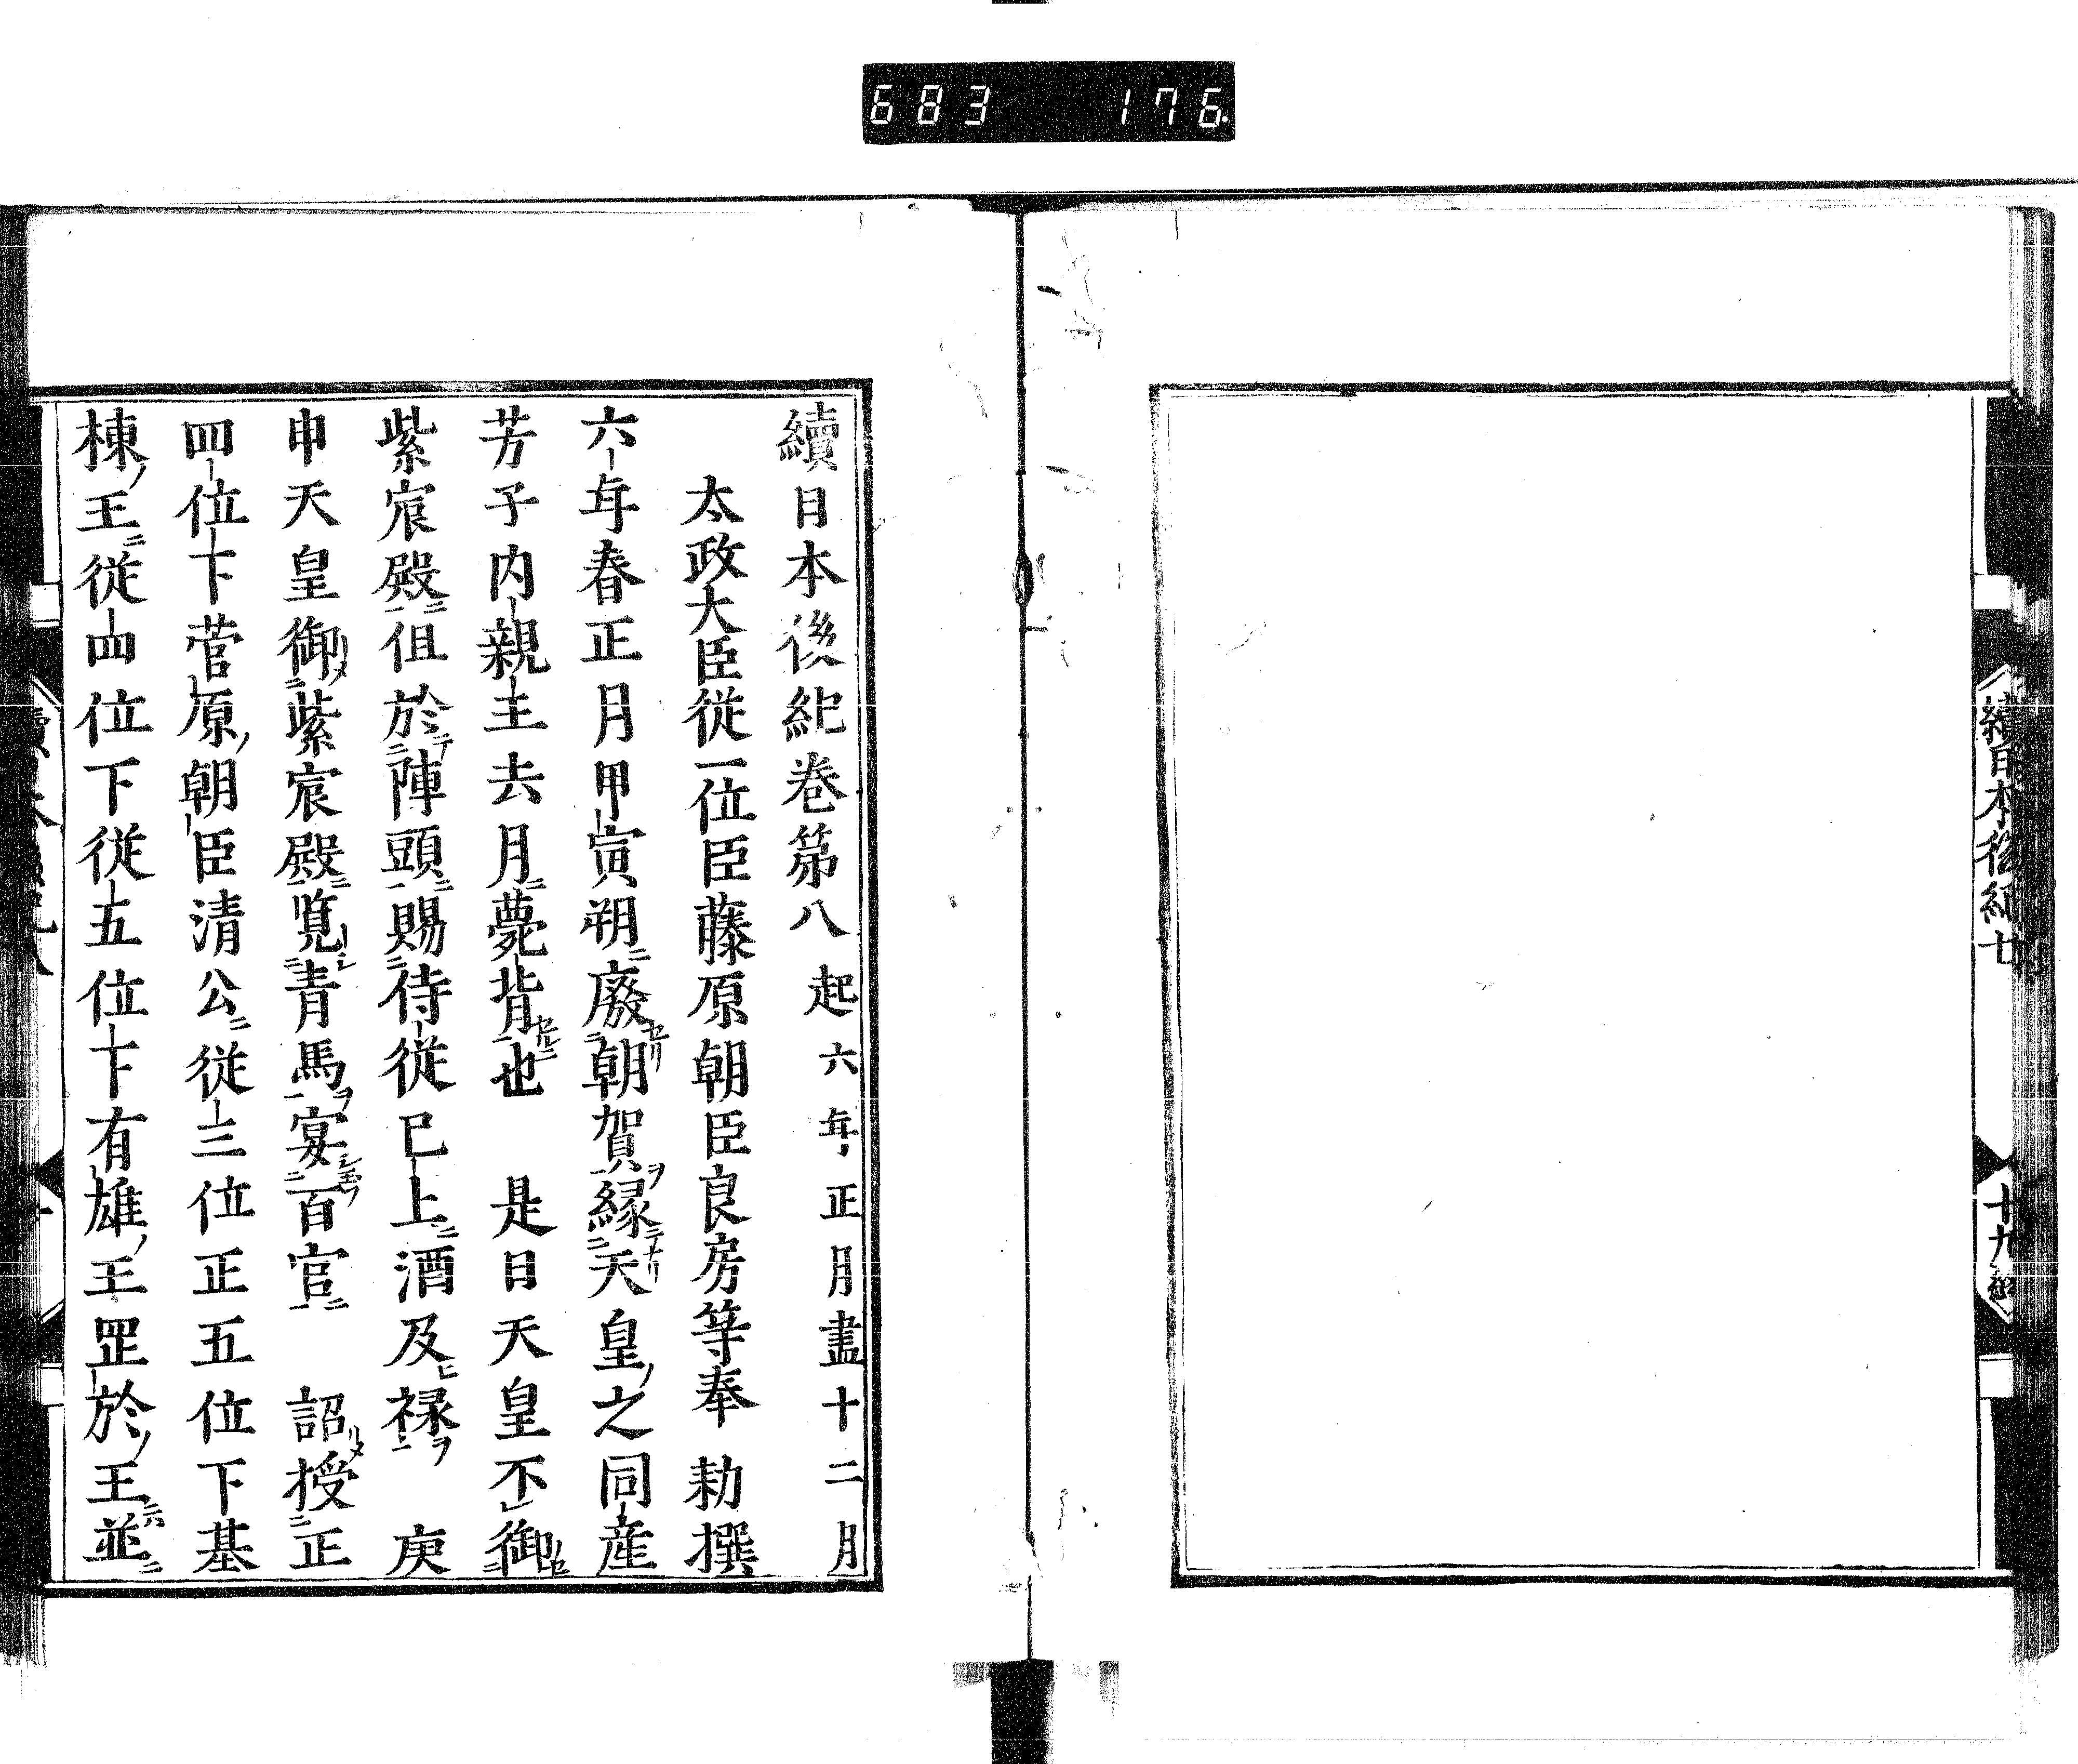 683 176
續日本後紀七
十九終
續日本後紀卷第八 起六年正月盡十二月
太政大臣從一位臣藤原朝臣良房等奉 勅撰
六年春正月甲寅朔廢朝賀縁天皇之同産
芳子内親王去月薨背也 是日天皇不御
紫宸殿但於陣頭賜侍從已上酒及禄 庚
申天皇御紫宸殿覧青馬宴百官 詔授正
四位下菅原朝臣清公從三位正五位下基
棟王從四位下從五位下有雄王罡於王並